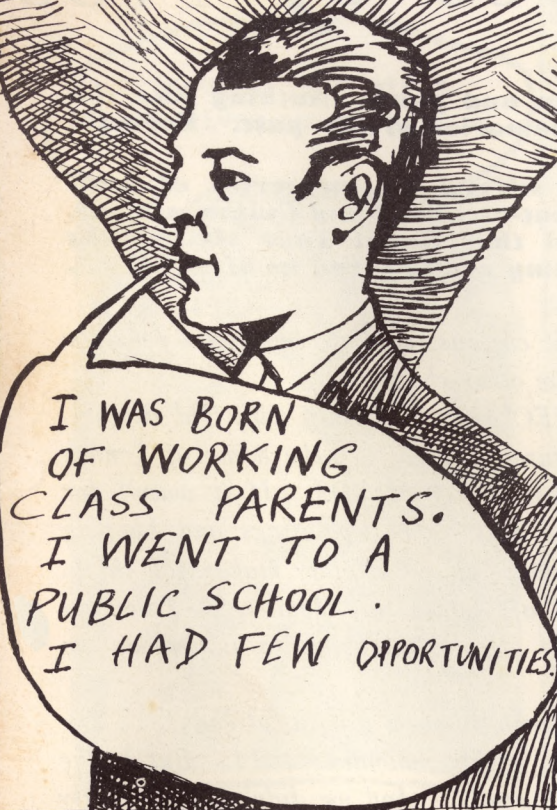 I WAS BORN
OF WORKING
CLASS PARENTS.
I WENT TO A
PUBLIC SCHOOL.
I HAD FEW OPPORTUNITIES.